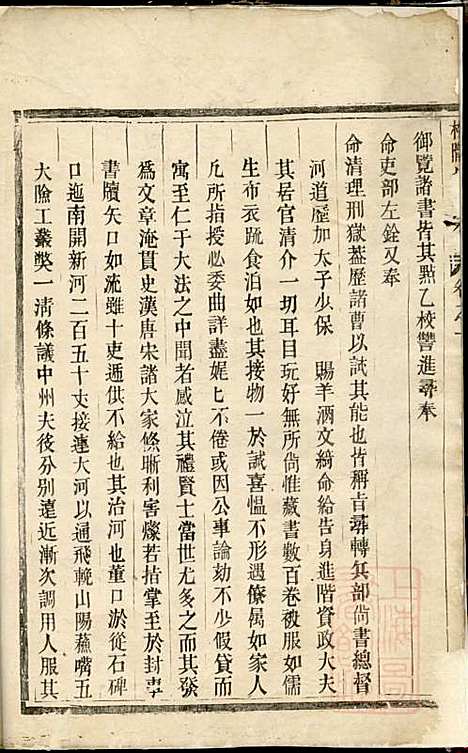 御覽諸書皆其㸃乙校讐進尋奉
命吏部左銓又奉
命清理刑獄葢歷諸曹以試其能也皆稱㫖尋轉兵部尙書總督
河道歷加太子少保　賜羊酒文綺命給告身進階資政大夫
其居官清介一切耳目玩好無所尙惟藏書數百卷被服如儒
生布衣蔬食泊如也其接物一於誠喜愠不形遇僚屬如家人
凡所指授必委曲詳盡娓匕不倦或因公事論劾不少假貸而
寓至仁于大法之中聞者感泣其禮賢士當世尤多之而其發
爲文章淹貫史漢唐宋諸大家條晰利害燦若指掌至於封事
書牘矢口如流雖十吏遞供不給也其治河也董口淤從石碑
口迤南開新河二百五十丈接連大河以通飛輓山陽蘓嘴五
大險工叢獘一清條議中州夫役分別遠近漸次調用人服其